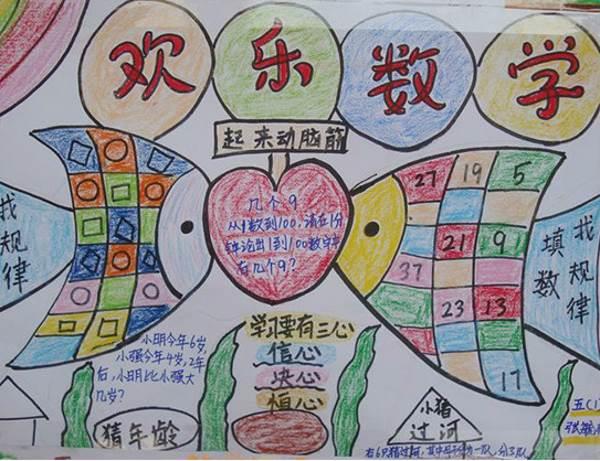 欢乐数学
起来动脑筋
几个9
从1数到100，请在1分
钟论出1到100数字中
有几个9？
找
规
律
27 19 5
21 9
37
23 13
17
填
数
找
规
律
小明今年6岁，
小强今年4岁，2年
后，小明比小强大
几岁？
猜年龄
学习要有三心
信心
决心
恒心
小猪
过河
五(1